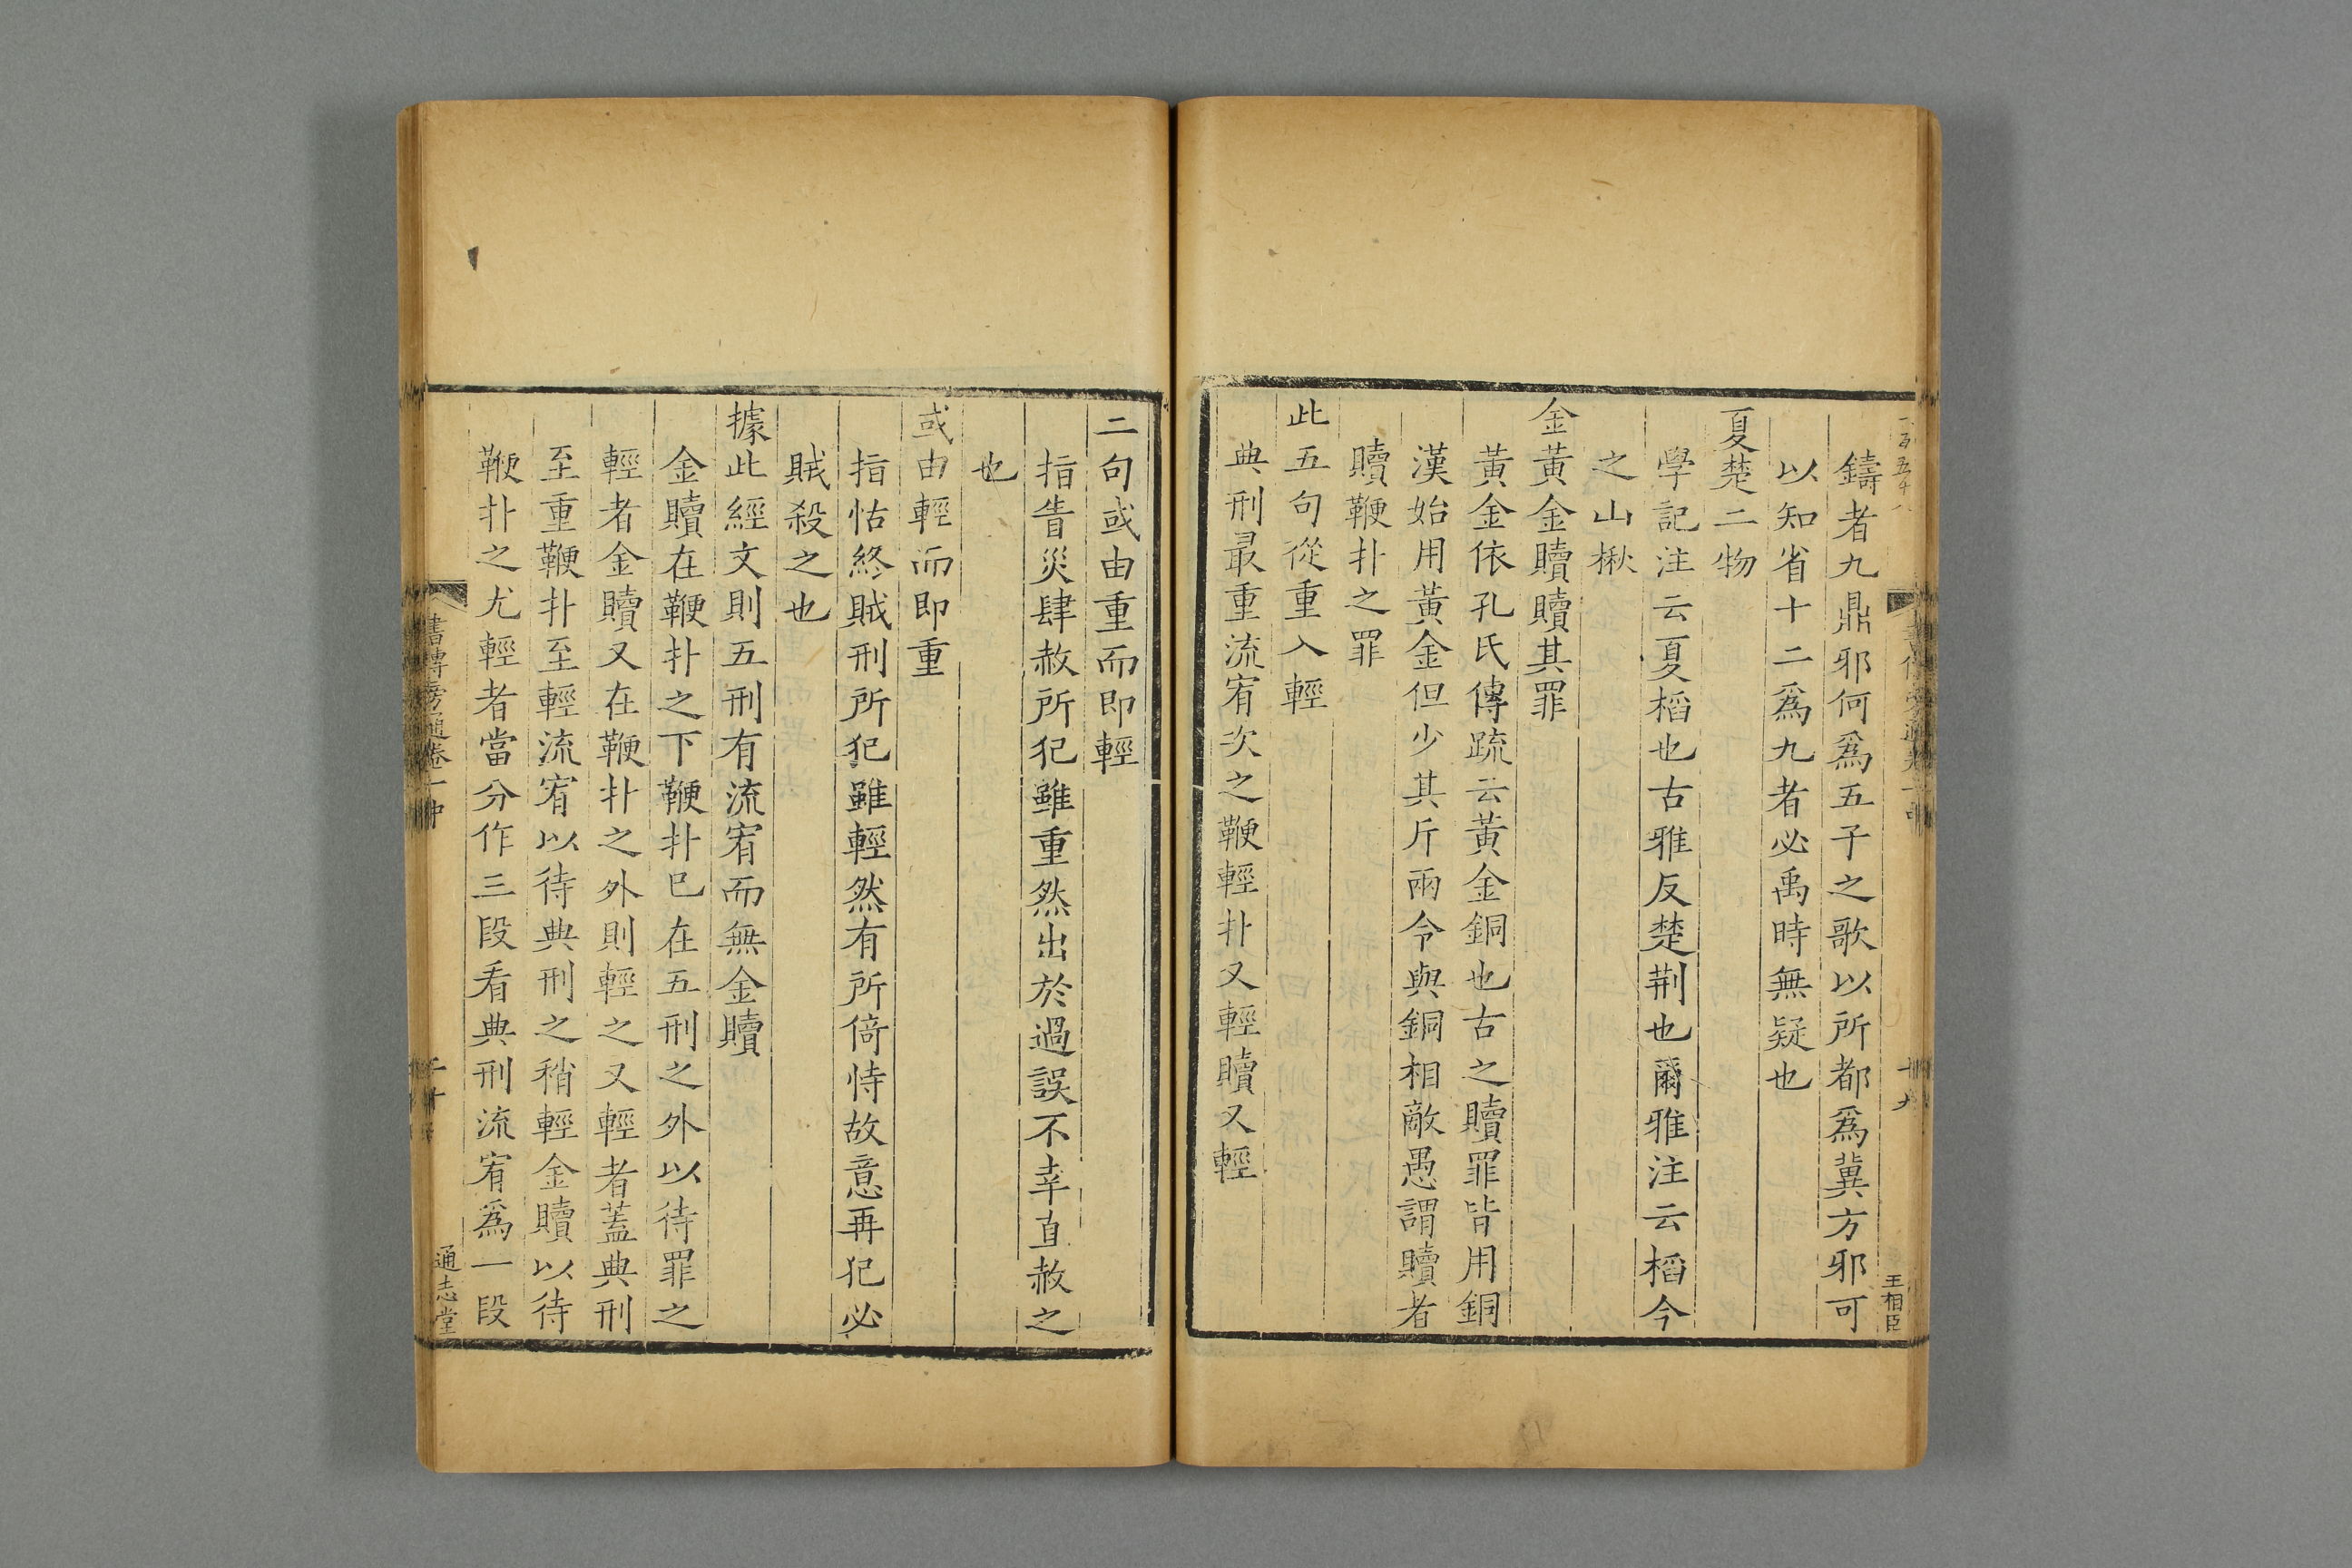 鑄者九鼎邪何爲五子之歌以所都爲冀方邪可
以知省十二爲九者必禹時無疑也
夏楚二物
學記注云夏稻也古雅反楚荆也爾雅注云稻今
之山楸
金黃金贖贖其罪
黃金依孔氏傳疏云黃金銅也古之贖罪皆用銅
漢始用黃金但少其斤兩令與銅相敵愚謂贖者
贖鞭扑之罪
此五句從重入輕
典刑最重流宥次之鞭輕扑又輕贖又輕
王相臣
二句或由重而即輕
指眚災肆赦所犯雖重然出於過誤不幸直赦之
也
或由輕而即重
指怙終賊刑所犯雖輕然有所倚恃故意再犯必
賊殺之也
據此經文則五刑有流宥而無金贖
金贖在鞭扑之下鞭扑巳在五刑之外以待罪之
輕者金贖又在鞭扑之外則輕之又輕者蓋典刑
至重鞭扑至輕流宥以待典刑之稍輕金贖以待
鞭扑之尤輕者當分作三段看典刑流宥爲一段
書傳旁通卷一中
二十
通志堂